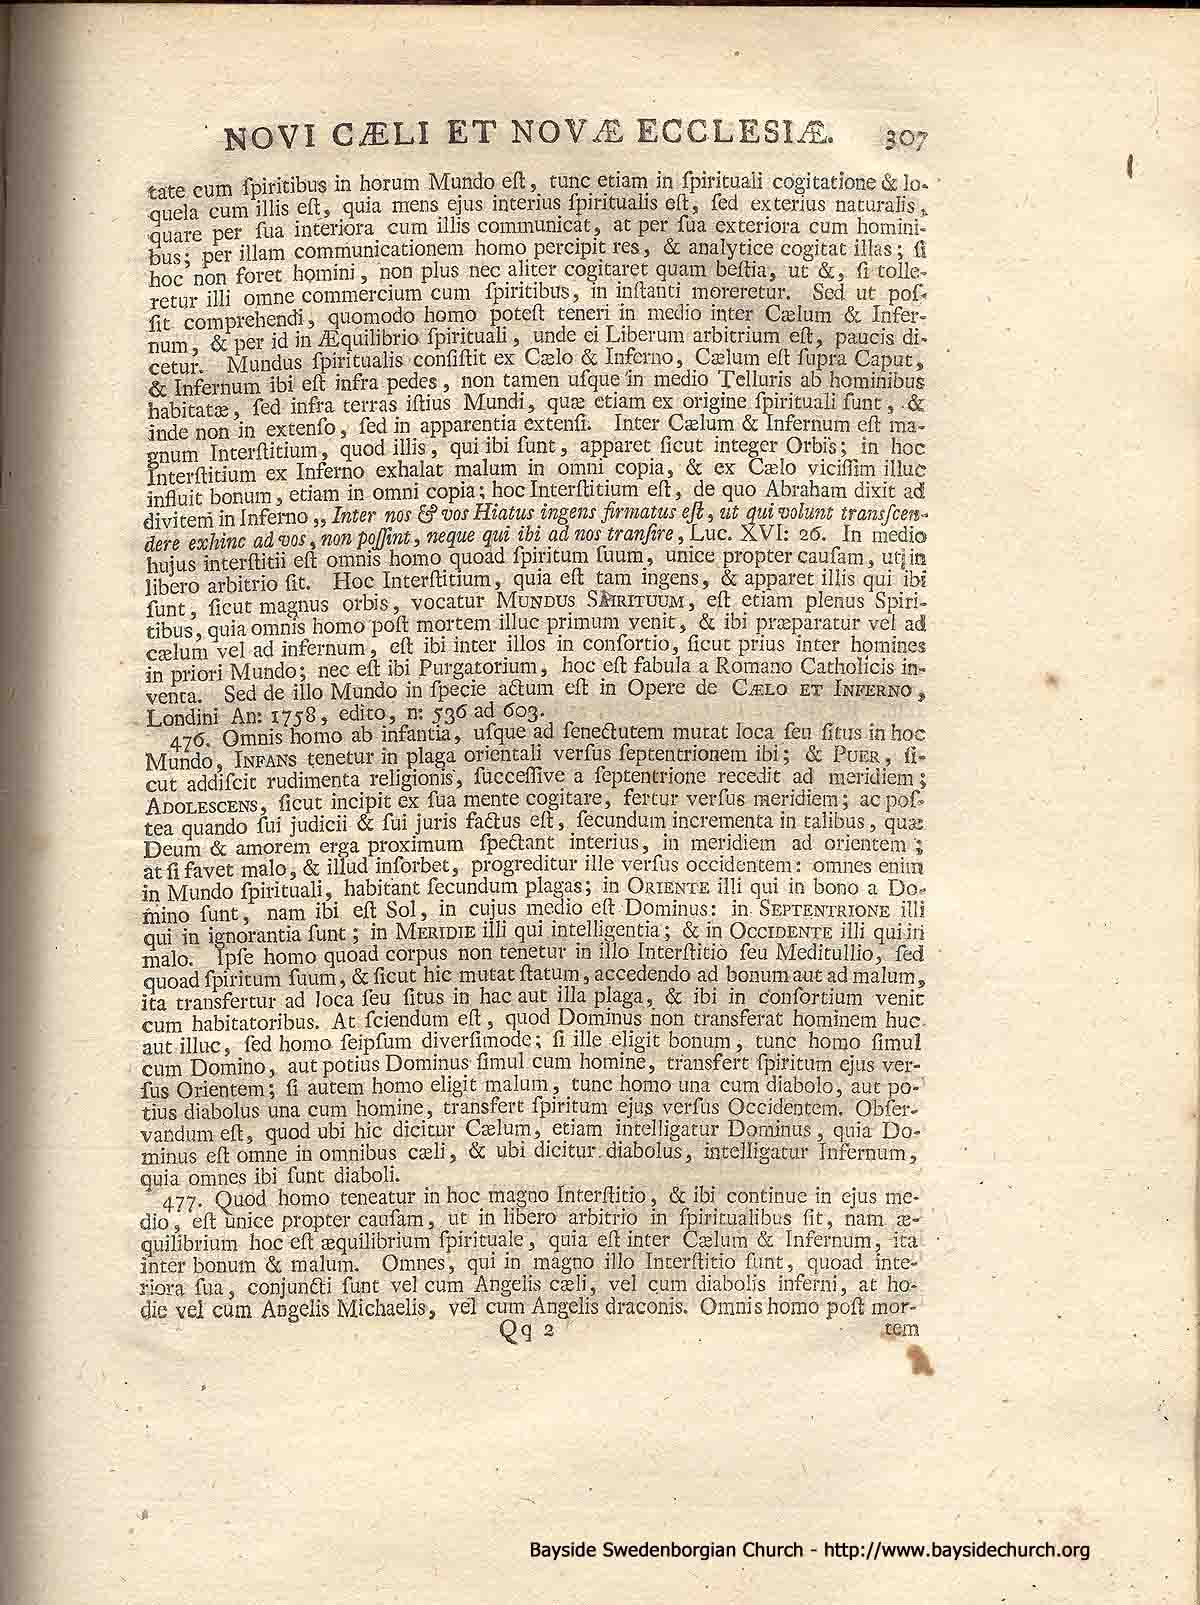 NOVI CÆLI ET NOVÆ ECCLESIÆ. 307
tate cum ſpiritibus in horum Mundo eſt, tunc etiam in ſpirituali cogitatione & lo-
quela cum illis eſt, quia mens ejus interius ſpiritualis eſt, ſed exterius naturalis,
quare per ſua interiora cum illis communicat, at per ſua exteriora cum homini-
bus; per illam communicationem homo percipit res, & analytice cogitat illas; ſi
hoc non foret homini, non plus nec aliter cogitaret quam beſtia, ut &, ſi tolle-
retur illi omne commercium cum ſpiritibus, in inſtanti moreretur. Sed ut poſ-
ſit comprehendi, quomodo homo poteſt teneri in medio inter Cælum & Infer-
num, & per id in Æquilibrio ſpirituali, unde ei Liberum arbitrium eſt, paucis di-
cetur. Mundus ſpiritualis conſiſtit ex Cælo & Inferno, Cælum eſt ſupra Caput,
& Infernum ibi eſt infra pedes, non tamen uſque in medio Telluris ab hominibus
habitatæ, ſed infra terras iſtius Mundi, quæ etiam ex origine ſpirituali ſunt, &
inde non in extenſo, ſed in apparentia extenſi. Inter Cælum & Infernum eſt ma-
gnum Interſtitium, quod illis, qui ibi ſunt, apparet ſicut integer Orbis; in hoc
Interſtitium ex Inferno exhalat malum in omni copia, & ex Cælo viciſſim illuc
influit bonum, etiam in omni copia; hoc Interſtitium eſt, de quo Abraham dixit ad
divitem in Inferno „ Inter nos & vos Hiatus ingens firmatus eſt, ut qui volunt transſcen-
dere exhinc ad vos, non poſſint, neque qui ibi ad nos tranſire, Luc. XVI: 26. In medio
hujus interſtitii eſt omnis homo quoad ſpiritum ſuum, unice propter cauſam, ut in
libero arbitrio ſit. Hoc Interſtitium, quia eſt tam ingens, & apparet illis qui ibi
ſunt, ſicut magnus orbis, vocatur MUNDUS SPIRITUUM, eſt etiam plenus Spiri-
tibus, quia omnis homo poſt mortem illuc primum venit, & ibi præparatur vel ad
cælum vel ad infernum, eſt ibi inter illos in conſortio, ſicut prius inter homines
in priori Mundo; nec eſt ibi Purgatorium, hoc eſt fabula a Romano Catholicis in-
venta. Sed de illo Mundo in ſpecie actum eſt in Opere de CÆLO ET INFERNO,
Londini An: 1758, edito, n: 536 ad 603.
476. Omnis homo ab infantia, uſque ad ſenectutem mutat loca ſeu ſitus in hoc
Mundo, INFANS tenetur in plaga orientali verſus ſeptentrionem ibi; & PUER, ſi-
cut addiſcit rudimenta religionis, ſucceſſive a ſeptentrione recedit ad meridiem;
ADOLESCENS, ſicut incipit ex ſua mente cogitare, fertur verſus meridiem; ac poſ-
tea quando ſui judicii & ſui juris factus eſt, ſecundum incrementa in talibus, quæ
Deum & amorem erga proximum ſpectant interius, in meridiem ad orientem;
at ſi favet malo, & illud inſorbet, progreditur ille verſus occidentem: omnes enim
in Mundo ſpirituali, habitant ſecundum plagas; in ORIENTE illi qui in bono a Do-
mino ſunt, nam ibi eſt Sol, in cujus medio eſt Dominus: in SEPTENTRIONE illi
qui in ignorantia ſunt; in MERIDIE illi qui intelligentia; & in OCCIDENTE illi qui in
malo. Ipſe homo quoad corpus non tenetur in illo Interſtitio ſeu Meditullio, ſed
quoad ſpiritum ſuum, & ſicut hic mutat ſtatum, accedendo ad bonum aut ad malum,
ita transfertur ad loca ſeu ſitus in hac aut illa plaga, & ibi in conſortium venit
cum habitatoribus. At ſciendum eſt, quod Dominus non transferat hominem huc
aut illuc, ſed homo ſeipſum diverſimode; ſi ille eligit bonum, tunc homo ſimul
cum Domino, aut potius Dominus ſimul cum homine, transfert ſpiritum ejus ver-
ſus Orientem; ſi autem homo eligit malum, tunc homo una cum diabolo, aut po-
tius diabolus una cum homine, transfert ſpiritum ejus verſus Occidentem. Obſer-
vandum eſt, quod ubi hic dicitur Cælum, etiam intelligatur Dominus, quia Do-
minus eſt omne in omnibus cæli, & ubi dicitur diabolus, intelligatur Infernum,
quia omnes ibi ſunt diaboli.
477. Quod homo teneatur in hoc magno Interſtitio, & ibi continue in ejus me-
dio, eſt unice propter cauſam, ut in libero arbitrio in ſpiritualibus ſit, nam æ-
quilibrium hoc eſt æquilibrium ſpirituale, quia eſt inter Cælum & Infernum, ita
inter bonum & malum. Omnes, qui in magno illo Interſtitio ſunt, quoad inte-
riora ſua, conjuncti ſunt vel cum Angelis cæli, vel cum diabolis inferni, at ho-
die vel cum Angelis Michaelis, vel cum Angelis draconis. Omnis homo poſt mor-
Qq 2 tem
Bayside Swedenborgian Church - http://www.baysidechurch.org